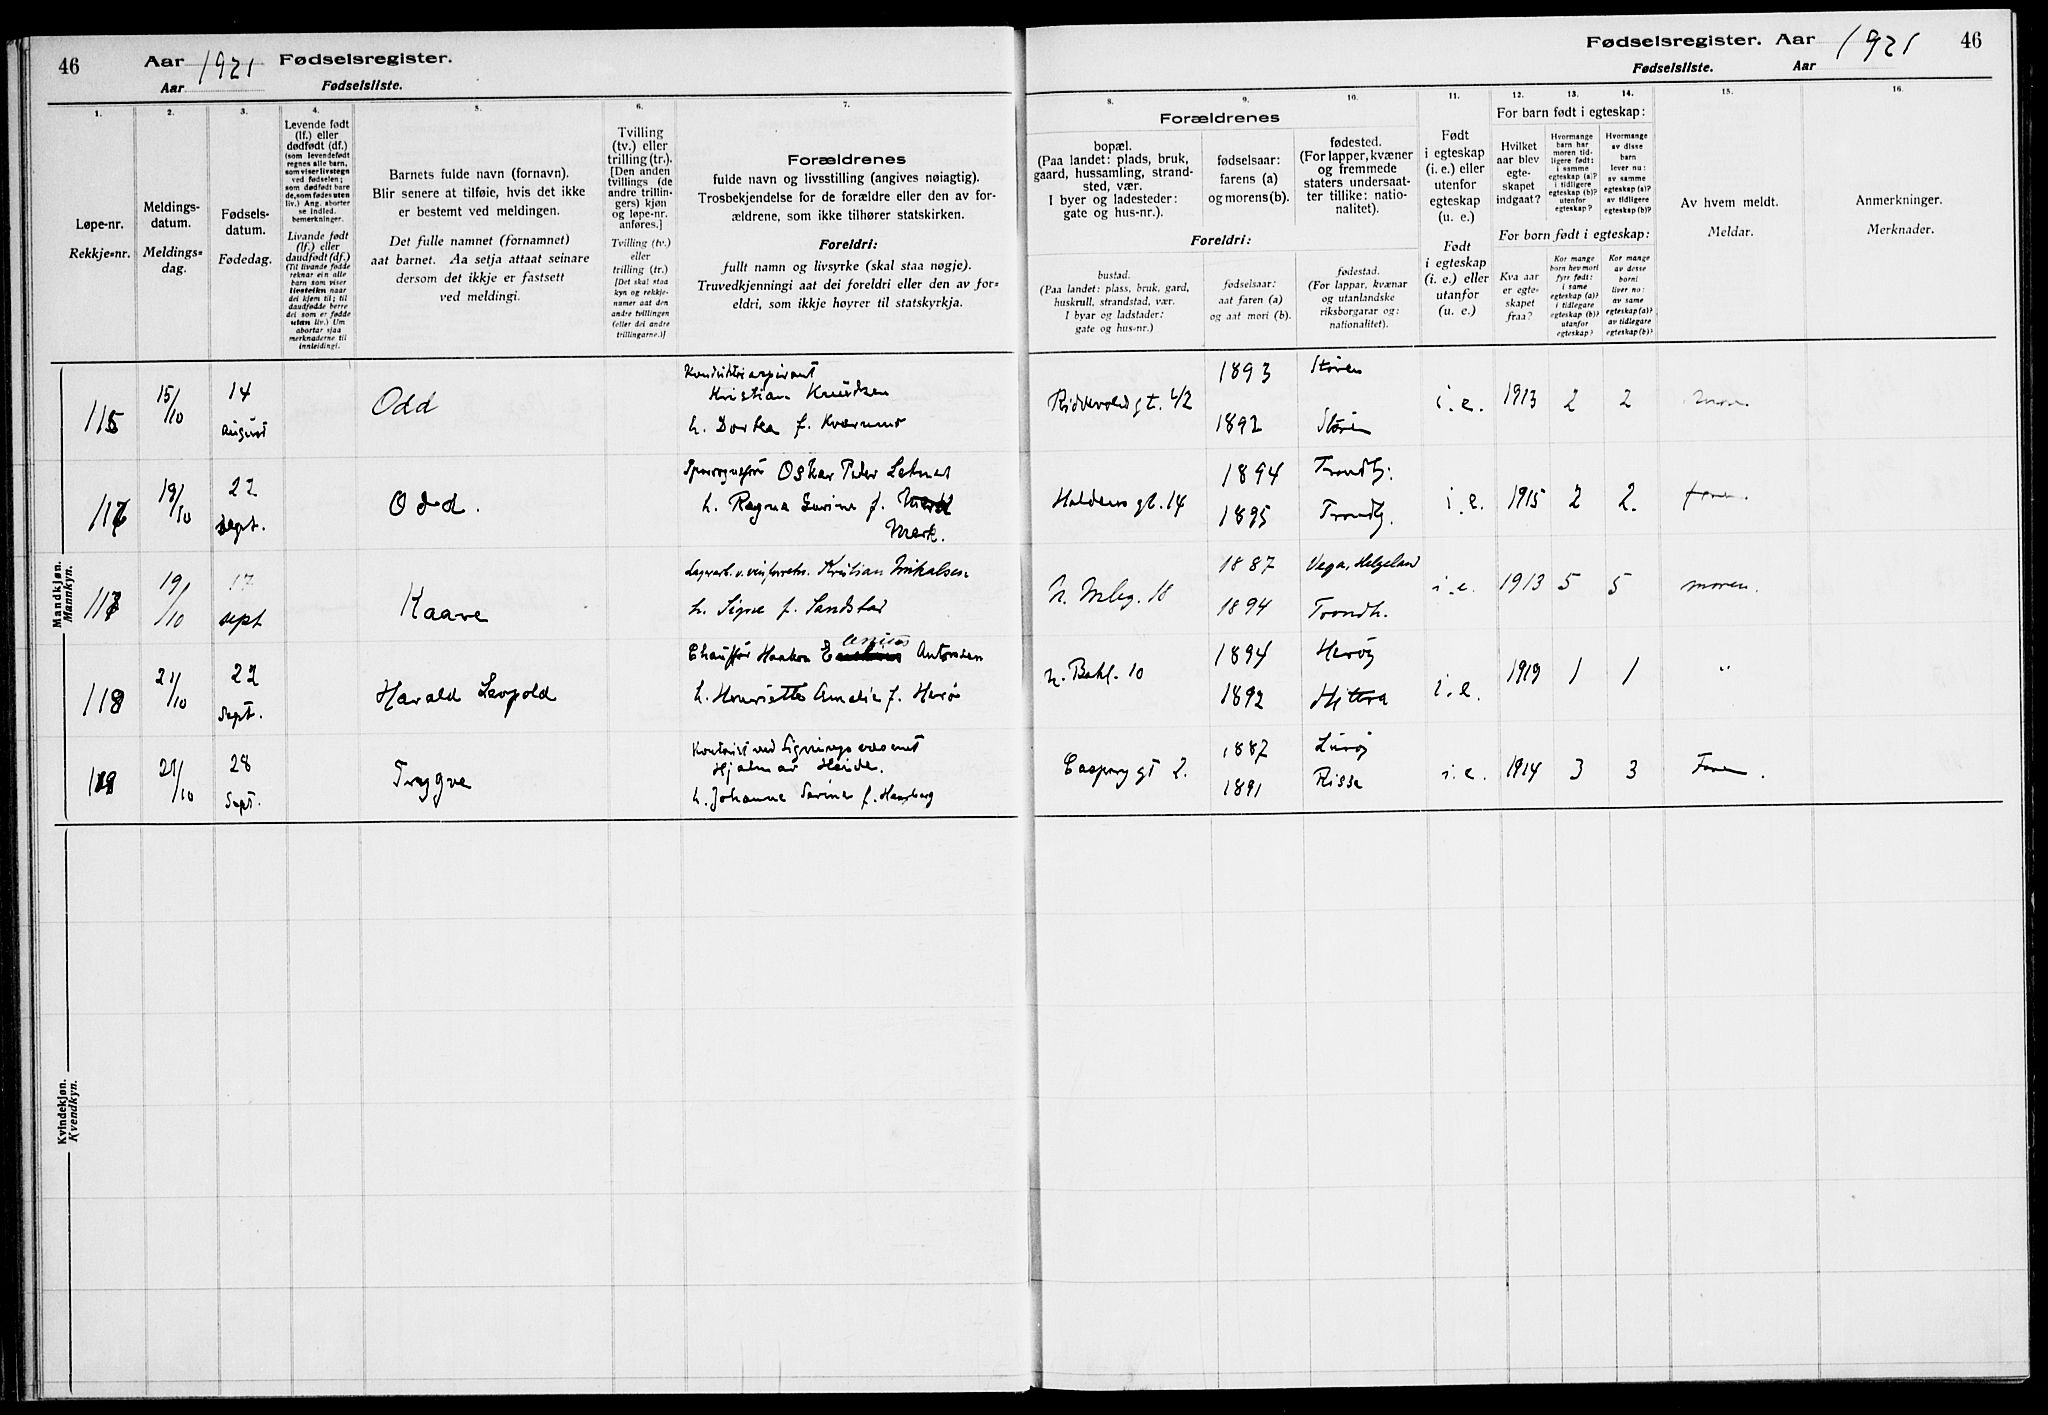 46
Aar 1921 Fødselsregister.
Aar Fødselsliste.
1.
2.
3.
4.
5.
6.
7.
Løpe-nr.
Rekkje-nr.
Meldings-
datum.
Meldings-
dag.
Fødsels-
datum.
Fødedag.
Levende født
(lf.) eller
dødfødt (df.)
(som levendefødt
regnes alle barn,
som viser livstegn
ved fødselen;
som dødfødt bare
de, som fødes uten
liv.) Ang. aborter
se indled.
bemerkninger.
Livande født
(lf.) eller
daudfødt (df.)
(Til livande fødde
reknar ein alle
barn som viser
livsteikn naar
dei kjem til; til
daudfødde berre
dei som er fødde
utan liv.) Um
abortar sjaa
merknaderne til
innleidingi.
Barnets fulde navn (fornavn).
Blir senere at tilføie, hvis det ikke
er bestemt ved meldingen.
Det fulle namnet (fornamnet)
aat barnet. Aa setja attaat seinare
dersom det ikkje er fastsett
ved meldingi.
Tvilling
(tv.) eller
trilling (tr.).
[Den anden
tvillings (de
andre trillin-
gers) kjøn
og løpe-nr.
anføres.]
Tvilling (tv.)
eller
trilling (tr.)
[Det skal staa
kyn og rekkje-
numer aat den
andre tvillingen
(eller dei andre
trillingarne.)]
Forældrenes
fulde navn og livsstilling (angives nøiagtig).
Trosbekjendelse for de forældre eller den av for-
ældrene, som ikke tilhører statskirken.
Foreldri:
fullt namn og livsyrke (skal staa nøgje).
Truvedkjenningi aat dei foreldri eller den av for-
eldri, som ikkje høyrer til statskyrkja.
Mandkjøn.
Mannkyn.
115
15/10
14
august
Odd
Kristian Knudsen
h. Dortea f.
116
19/10
22
sept.
Odd.
Oskar Peder
h. Ragna f.
Mork.
117
19/10
17
sept
Kaare
Kristian Mikalsen
h. Signe f. Sandstad
118
21/10
22
Sept.
Harald Leopold
Chauffør Haakon Antonsen
h. Henriette Amalie f. Herø
119
21/10
28
Sept.
Trygve
Kontorist ved Ligningsvæsenet
Hjalmar Heide.
h. Johanne f.
Kvindekjøn.
Kvendkyn.
Fødselsregister. Aar 1921 46
Fødselsliste. Aar
8.
9.
10.
11.
12.
13.
14.
15.
16.
Forældrenes
bopæl.
(Paa landet: plads, bruk,
gaard, hussamling, strand-
sted, vær.
I byer og ladesteder:
gate og hus-nr.).
fødselsaar:
farens (a)
og morens (b).
fødested.
(For lapper, kvæner
og fremmede
staters undersaat-
ter tillike: natio-
nalitet).
Foreldri:
bustad.
(Paa landet: plass, bruk, gard,
huskrull, strandstad, vær.
I byar og ladstader:
gate og hus-nr.)
fødselsaar:
aat faren (a)
og aat mori (b).
fødestad.
(For lappar, kvænar
og utanlandske
riksborgarar og:
nationalitet).
Født
i egteskap
(i. e.) eller
utenfor
egteskap
(u. e.)
Født
i egteskap
(i. e.) eller
utanfor
(u. e.)
For barn født i egteskap:
Hvilket
aar blev
egte-
skapet
indgaat?
Hvormange
barn har
moren tid-
ligere født:
i samme
egteskap (a)?
i tidligere
egteskap (b)?
utenfor
egteskap?
Hvormange
av disse
barn
lever nu:
av samme
egteskap (a)?
av tidligere
egteskap (b)?
For born født i egteskap:
Kva aar
er egte-
skapet
fraa?
Kor mange
born hev mori
fyrr født:
i same
egteskap (a)?
i tidlegare
egteskap (b)?
utanfor
egteskap?
Kor mange
av desse
borni
liver no:
av same
egteskap (a)?
av tidlegare
egteskap (b)?
Av hvem meldt.
Meldar.
Anmerkninger.
Merknader.
1893 Støren
1892 Støren
i.e. 1913 2 2 Moren
Haldens gt. 14
1894 Trondhj.
1895 Trondhj.
i.e. 1915 2 2. faren.
18
1887 Vega, Helgeland
1894 Trondh.
i.e. 1913 5 5 moren.
n. Bakl. 10
1894 Herøy
1892 Hittra
i.e. 1919 1 1 "
1887 Lurøy
1891 Rissa
i.e. 1914 3 3 Faren.